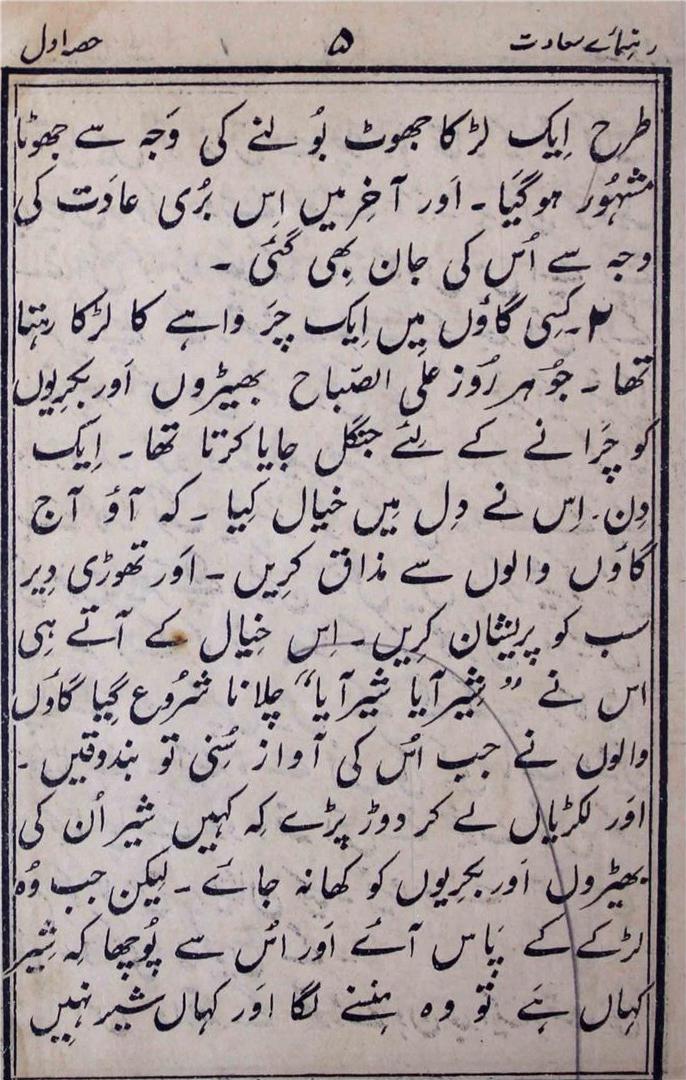 رہنمائے سعادت ۵ حصہ اول
طرح اِیک لڑکا جھوٹ بُولنے کی وَجہ سے جھوٹا
مشہُور ہوگیَا ۔ اَور آخِر میں اِس بُری عادَت کی
وجہ سے اُس کی جان بھِی گئی ۔
۲۔ کِسِی گاؤں مِیں اِیک چَرواہے کا لڑکا رہتا
تھا ۔ جُو ہر رُوز علی الصّباح بھیڑوں اَور بکرِیوں
کو چَرانے کے لِئے جنگل جایا کرتا تھا ۔ اِیک
دِن ۔ اِس نے دِل مِیں خیال کِیا ۔ کہ آؤ آج
گاؤں والوں سے مذاق کرِیں ۔ اَور تھوڑی دِیر
سب کو پریشان کرِیں ۔ اِس خِیال کے آتے ہی
اس نے ”شِیر آیا شیر آیا“ چلانا شُروع کِیا گاؤں
والوں نے جب اُس کی آواز سُنی تو بندوقیں ۔
اوَر لکڑیاں لے کر دوڑ پڑے کِہ کہیں شیر اُن کی
بھیڑوں اَور بکرِیوں کو کھا نہ جائے ۔ لیکن جب وُہ
لڑکے کے پَاس آئے اَور اُس سے پُوچھا کِہ شِیر
کہاں ہَے تُو وہ ہنسنے لگا اوَر کہاں شیر نہِیں